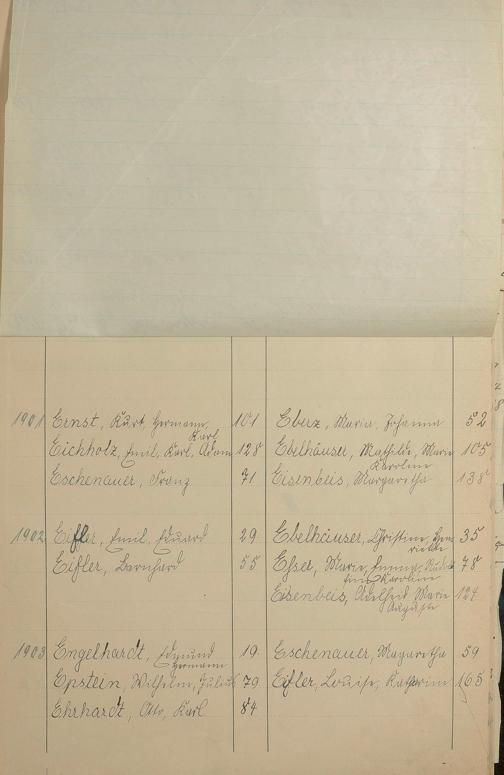 1901 Ernst, Kurt, Hermann, Karl 101 Eberz, Maria, Johanna 52
Eichholz, Emil, Karl, Adam 128 Ebelhäuser, Mathilde, Marie Karoline 105
Eschenauer, Franz 71 Eisenbeis, Margaretha 138
1902 Eifler, Emil, Eduard 29 Ebelhäuser, Christine, Henriette 35
Eifler, Bernhard 55 Essel, Marie, Karoline 78
Eisenbeis, Marie Auguste 124
1903 Engelhardt, Edmund Hermann 19 Eschenauer, Magaretha 59
Epstein, Wilhelm, Julius 79 Eifler, Louise, Katharine 165
Ehrhardt, Otto, Karl 84